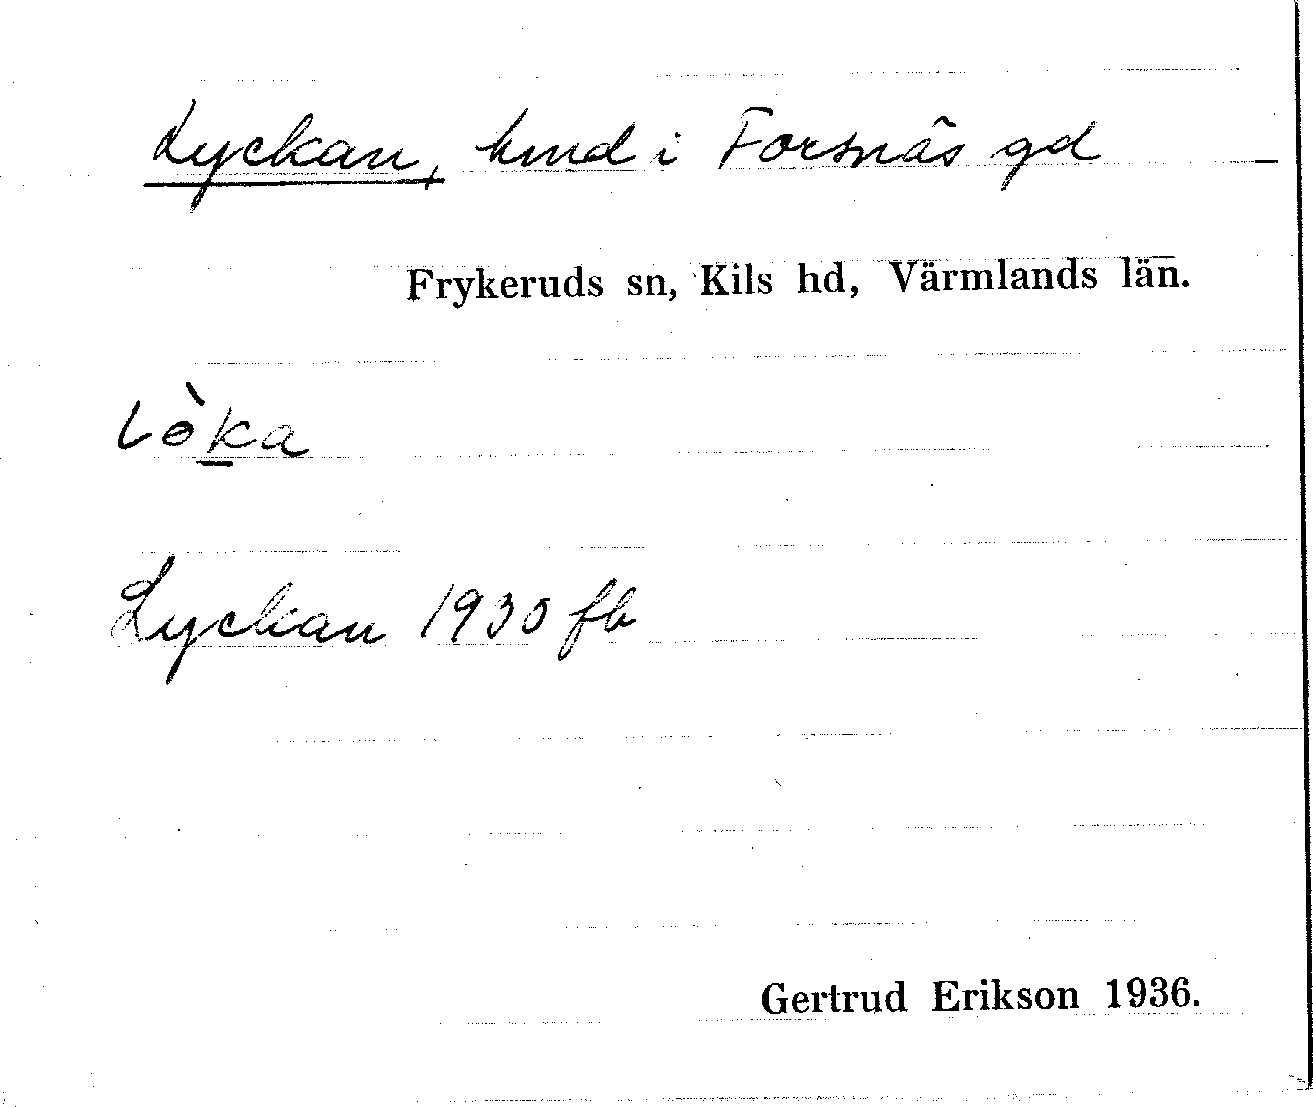 Lyckan, hmd i Forsnäs gd
Frykeruds sn, Kils hd, Värmlands län.
Lyckan 1930 fb
Gertrud Erikson 1936.